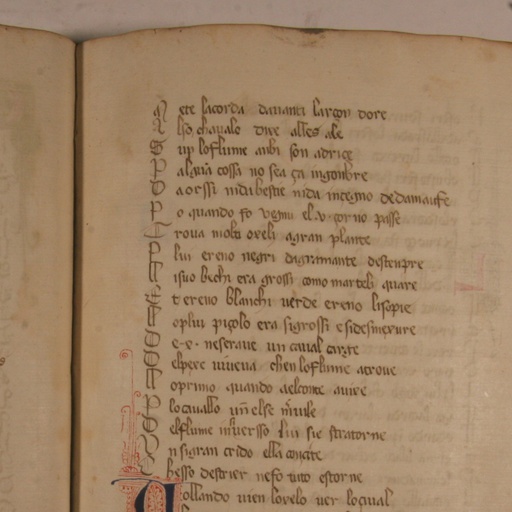 M ete lacorda dauanti larçon dore
A lso chaualo dixe alles ale
S up loflume anbi son adriçe
P alguā cossa no sea ça ingonbre
D a orssi nida bestie nida incegno dedamaufe
P o quando fo uegnu el .v. çorno passe
T roua molti oxeli agran plante
P lui ereno negri dagramante destenpre
L isuo bechi era grossi como marteli quare
E t ereno blanchi uerde ereno lisopie
oplui piçolo era sigrossi esidesmexure
e nescraue un caual
elpexe uiueua chen loflume atroue
oprimo quando aelconte auire
locauallo else
elflume inuersso lui sie stratorne
n sigran crido ella
besso destrier nefo tuto estorne
Q ollando uien louelo uer locaual